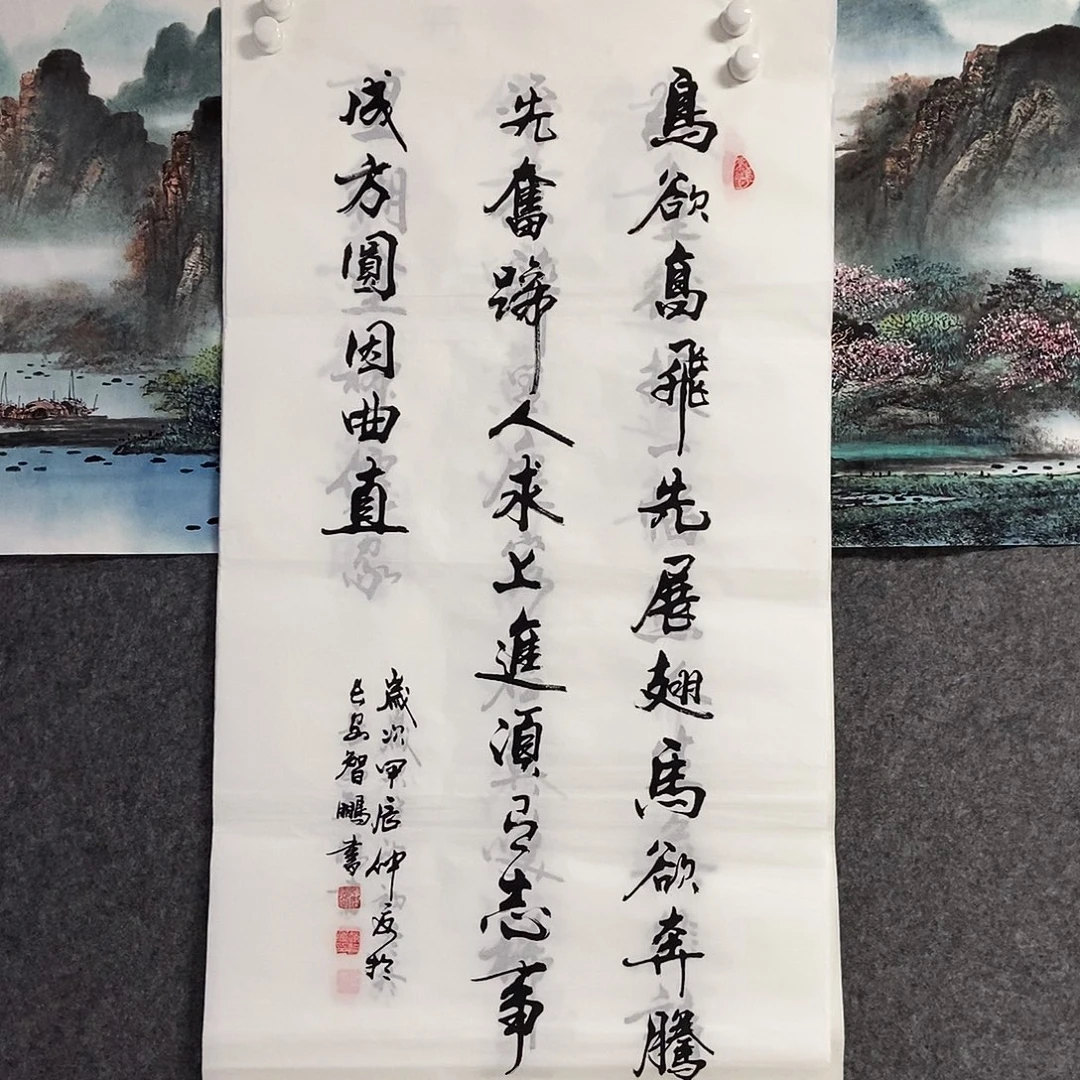 鳥欲高飛先展翅馬欲奔騰
先奮蹄人求上進須有志事
成方圓因曲直
歲次甲辰仲夏於
長安智鵬書